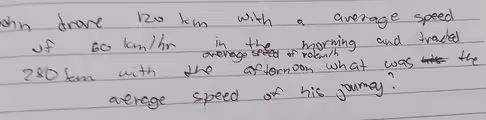 ohn drove 120 km with a average speed
of 60 km/hr in the morning and traded
average speed of 70km/h
280 km with the afternoon what was the
average speed of his journey?